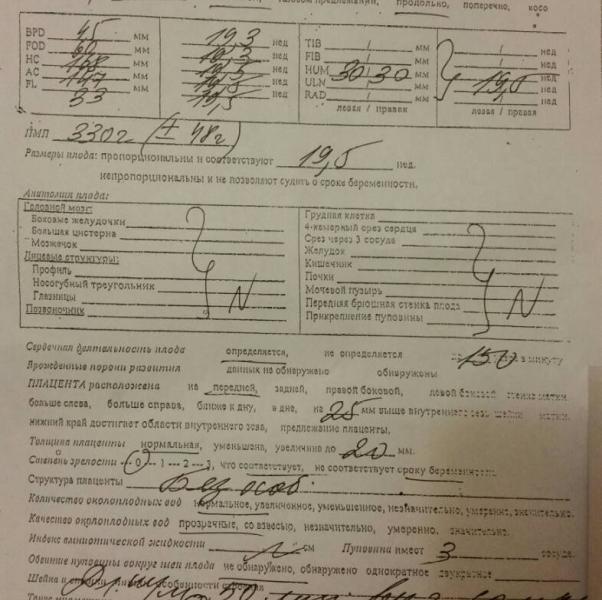 продольно, поперечно, косо
BPD 45 мм 19,3 нед TIB / мм / нед
FOD 60 мм нед FIB / мм / нед
HC 168 мм нед HUM 30 30 мм 19,5 нед
AC 147 мм нед ULN / мм / нед
FL 33 19,5 RAD / мм / нед
левая / правая левая / правая
ПМП 330 г (± 48 г)
Размеры плода: пропорциональны и соответствуют 19,5 нед.
непропорциональны и не позволяют судить о сроке беременности.
Анатомия плода:
Головной мозг: Грудная клетка
Боковые желудочки 4-камерный срез сердца
Большая цистерна Срез через 3 сосуда
Мозжечок Желудок
Лицевые структуры: Кишечник
Профиль Почки
Носогубный треугольник N Мочевой пузырь N
Глазницы Передняя брюшная стенка плода
Позвоночник Прикрепление пуповины
Сердечная деятельность плода определяется, не определяется 150 в минуту
Врожденные пороки развития данных не обнаружено обнаружены
ПЛАЦЕНТА расположена на передней, задней, правой боковой, левой боковой стенке матки
больше слева, больше справа, ближе к дну, в дне, на 25 мм выше внутреннего зева шейки матки.
нижний край достигает области внутреннего зева, предлежание плаценты.
Толщина плаценты нормальная, уменьшена, увеличена до 20 мм.
Степень зрелости 0 --- 1 --- 2 --- 3, что соответствует, не соответствует сроку беременности.
Структура плаценты Без особ.
Количество околоплодных вод нормальное, увеличенное, уменьшенное, незначительно, умеренно, значительно.
Качество околоплодных вод прозрачные, со взвесью, незначительно, умеренно, значительно.
Индекс амниотической жидкости см Пуповина имеет 3 сосуда.
Обвитие пуповины вокруг шеи плода не обнаружено, обнаружено однократное двукратное
Шейка и особенности